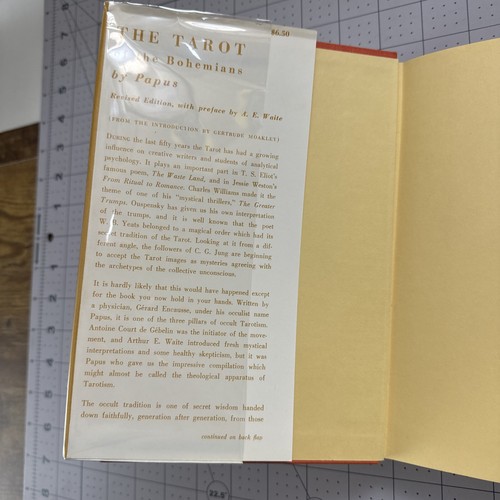 THE TAROT
$6.50
the Bohemians
by Papus
Revised Edition, with preface by A. E. Waite
(FROM THE INTRODUCTION BY GERTRUDE MOAKLEY)
DURING the last fifty years the Tarot has had a growing
influence on creative writers and students of analytical
psychology. It plays an important part in T. S. Eliot's
famous poem, The Waste Land, and in Jessie Weston's
From Ritual to Romance. Charles Williams made it the
theme of one of his "mystical thrillers," The Greater
Trumps. Ouspensky has given us his own interpretation
of the trumps, and it is well known that the poet
W. B. Yeats belonged to a magical order which had its
secret tradition of the Tarot. Looking at it from a dif-
ferent angle, the followers of C. G. Jung are beginning
to accept the Tarot images as mysteries agreeing with
the archetypes of the collective unconscious.
It is hardly likely that this would have happened except
for the book you now hold in your hands. Written by
a physician, Gérard Encausse, under his occultist name
Papus, it is one of the three pillars of occult Tarotism.
Antoine Court de Gébelin was the initiator of the move-
ment, and Arthur E. Waite introduced fresh mystical
interpretations and some healthy skepticism, but it was
Papus who gave us the impressive compilation which
might almost be called the theological apparatus of
Tarotism.
The occult tradition is one of secret wisdom handed
down faithfully, generation after generation, from those
continued on back flap
22.5